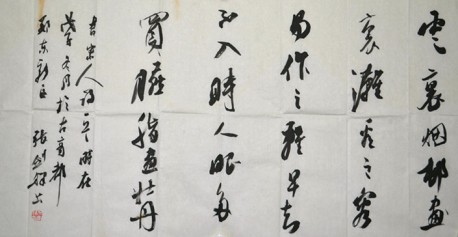 雲裏烟邨畫
裏灘看之容
易作之難早知
不入時人眼多
買臙脂畫牡丹
書宋人詩一首時在
冬月於古商都
鄭東新區 張